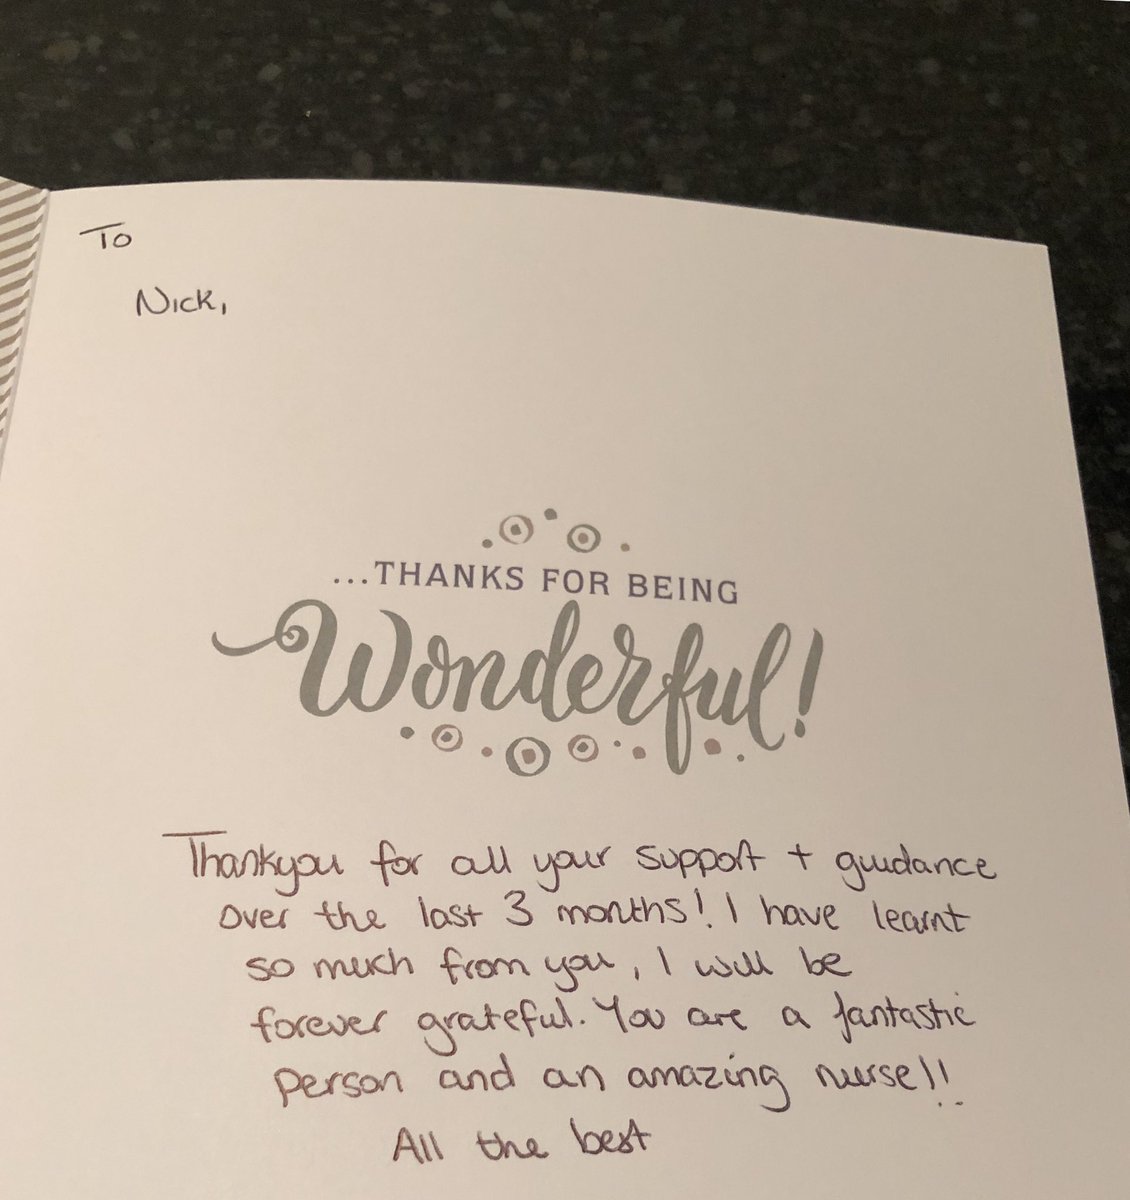 To
Nick,
...THANKS FOR BEING
Wonderful!
Thankyou for all your support + guidance
over the last 3 months! I have learnt
so much from you, I will be
forever grateful. You are a fantastic
person and an amazing nurse!!
All the best